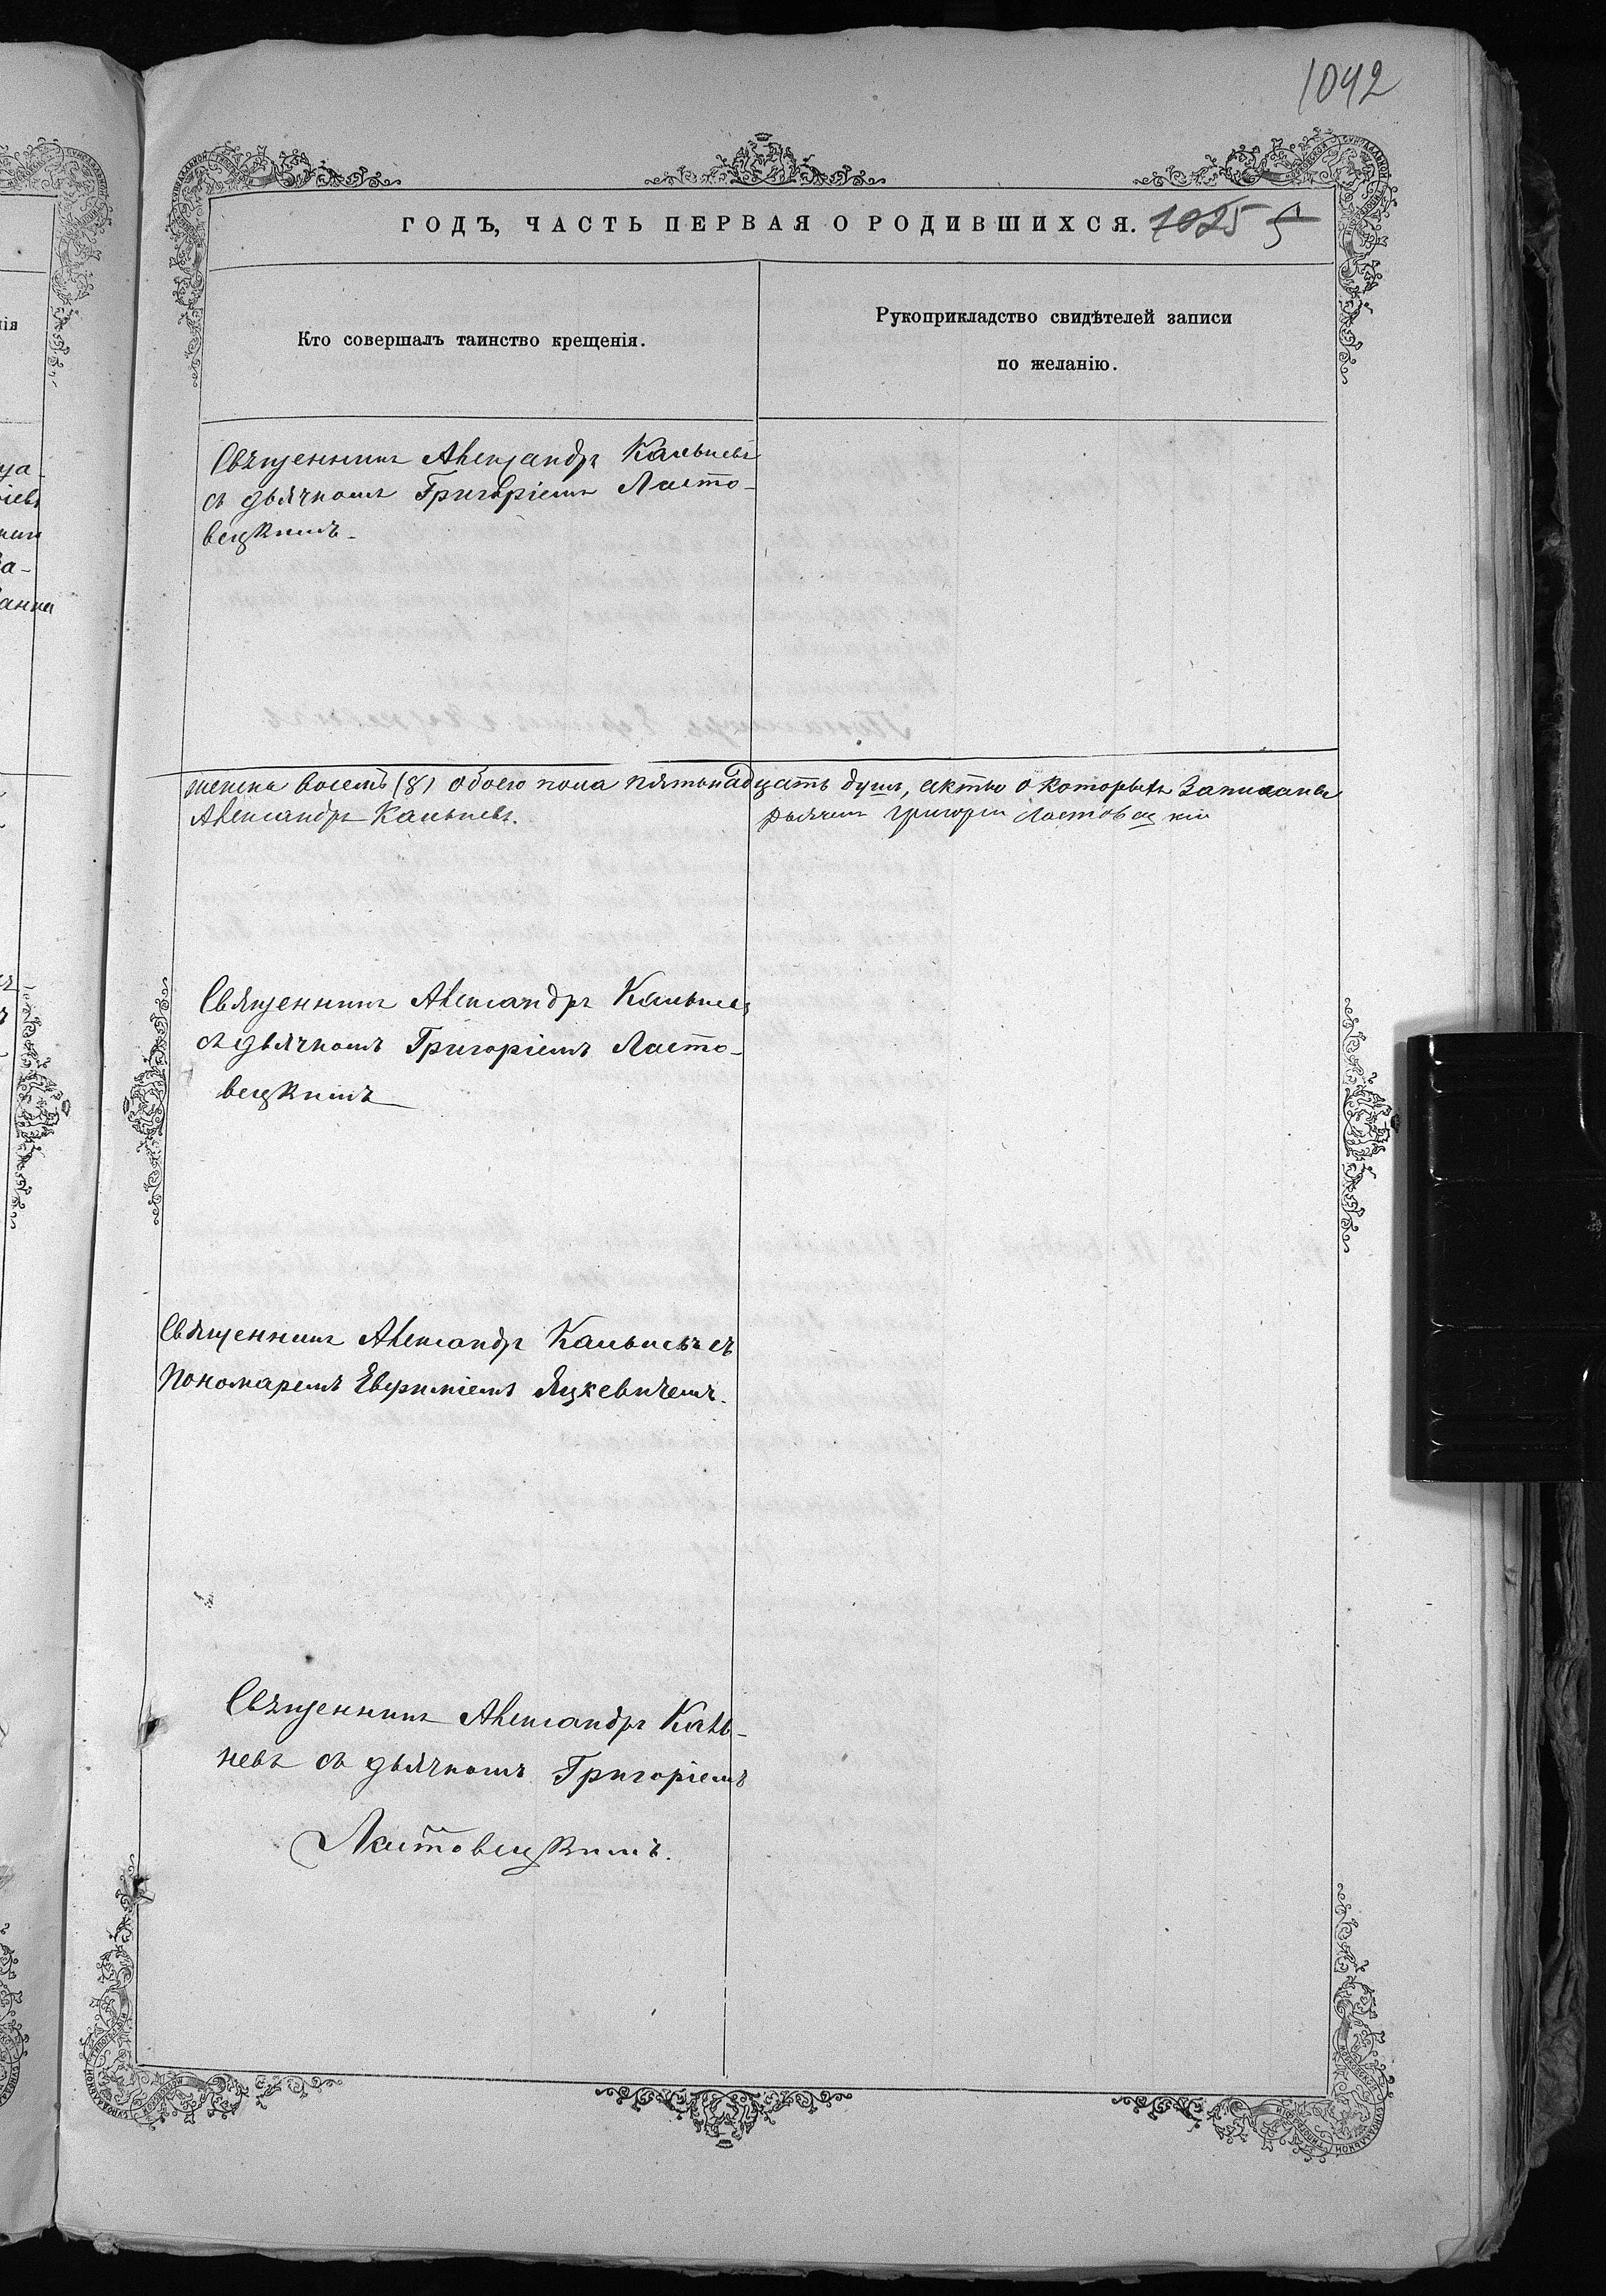 1042
ГОДЪ, ЧАСТЬ ПЕРВАЯ О РОДИВШИХСЯ. 1025
Кто совершалъ таинство крещенія.
Рукоприкладство свидѣтелей записи
по желанію.
Священникъ Александръ Кальневъ
съ дьячкомъ Григоріемъ Ласто-
вецкимъ.
женска восемь (8) обоего пола пятьнадцать душъ, актью о которыхъ записаны
Александръ Кальневъ.
Дьячекъ Григорій Ластовецкій
Священникъ Александръ Кальневъ
съ дьячкомъ Григоріемъ Ласто-
вецкимъ
Священникъ Александръ Кальневъ съ
Пономаремъ Евфиміемъ Яцкевичемъ.
Священникъ Александръ Каль-
невъ съ дьячкомъ Григоріемъ
Ластовецкимъ.